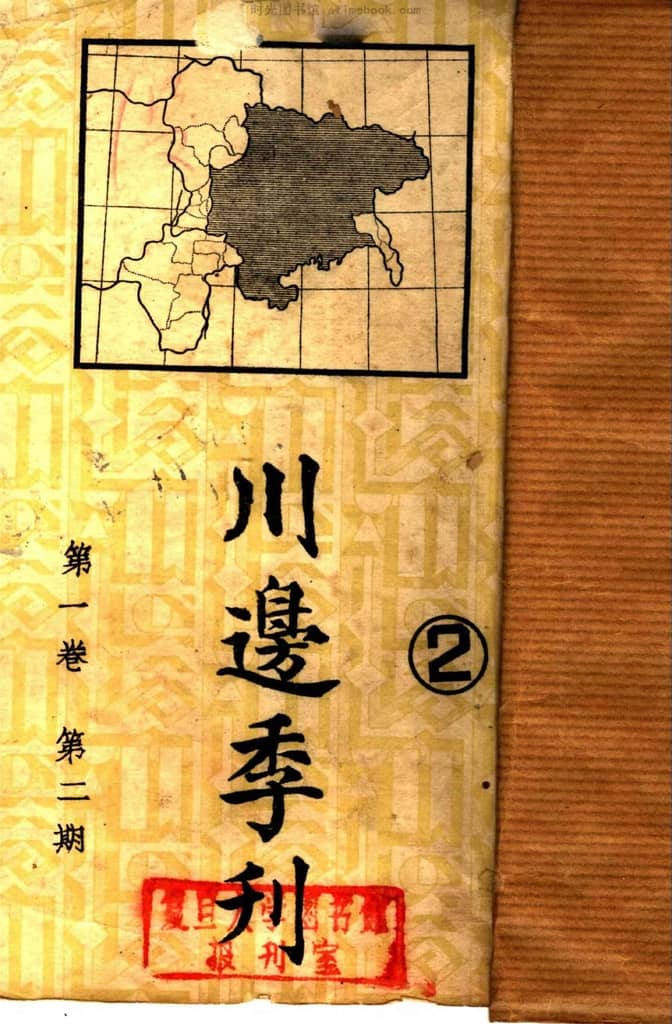 时光图书馆 atimebook.com
川邊季刊
②
第一卷 第二期
复旦大学图书馆
报刊室